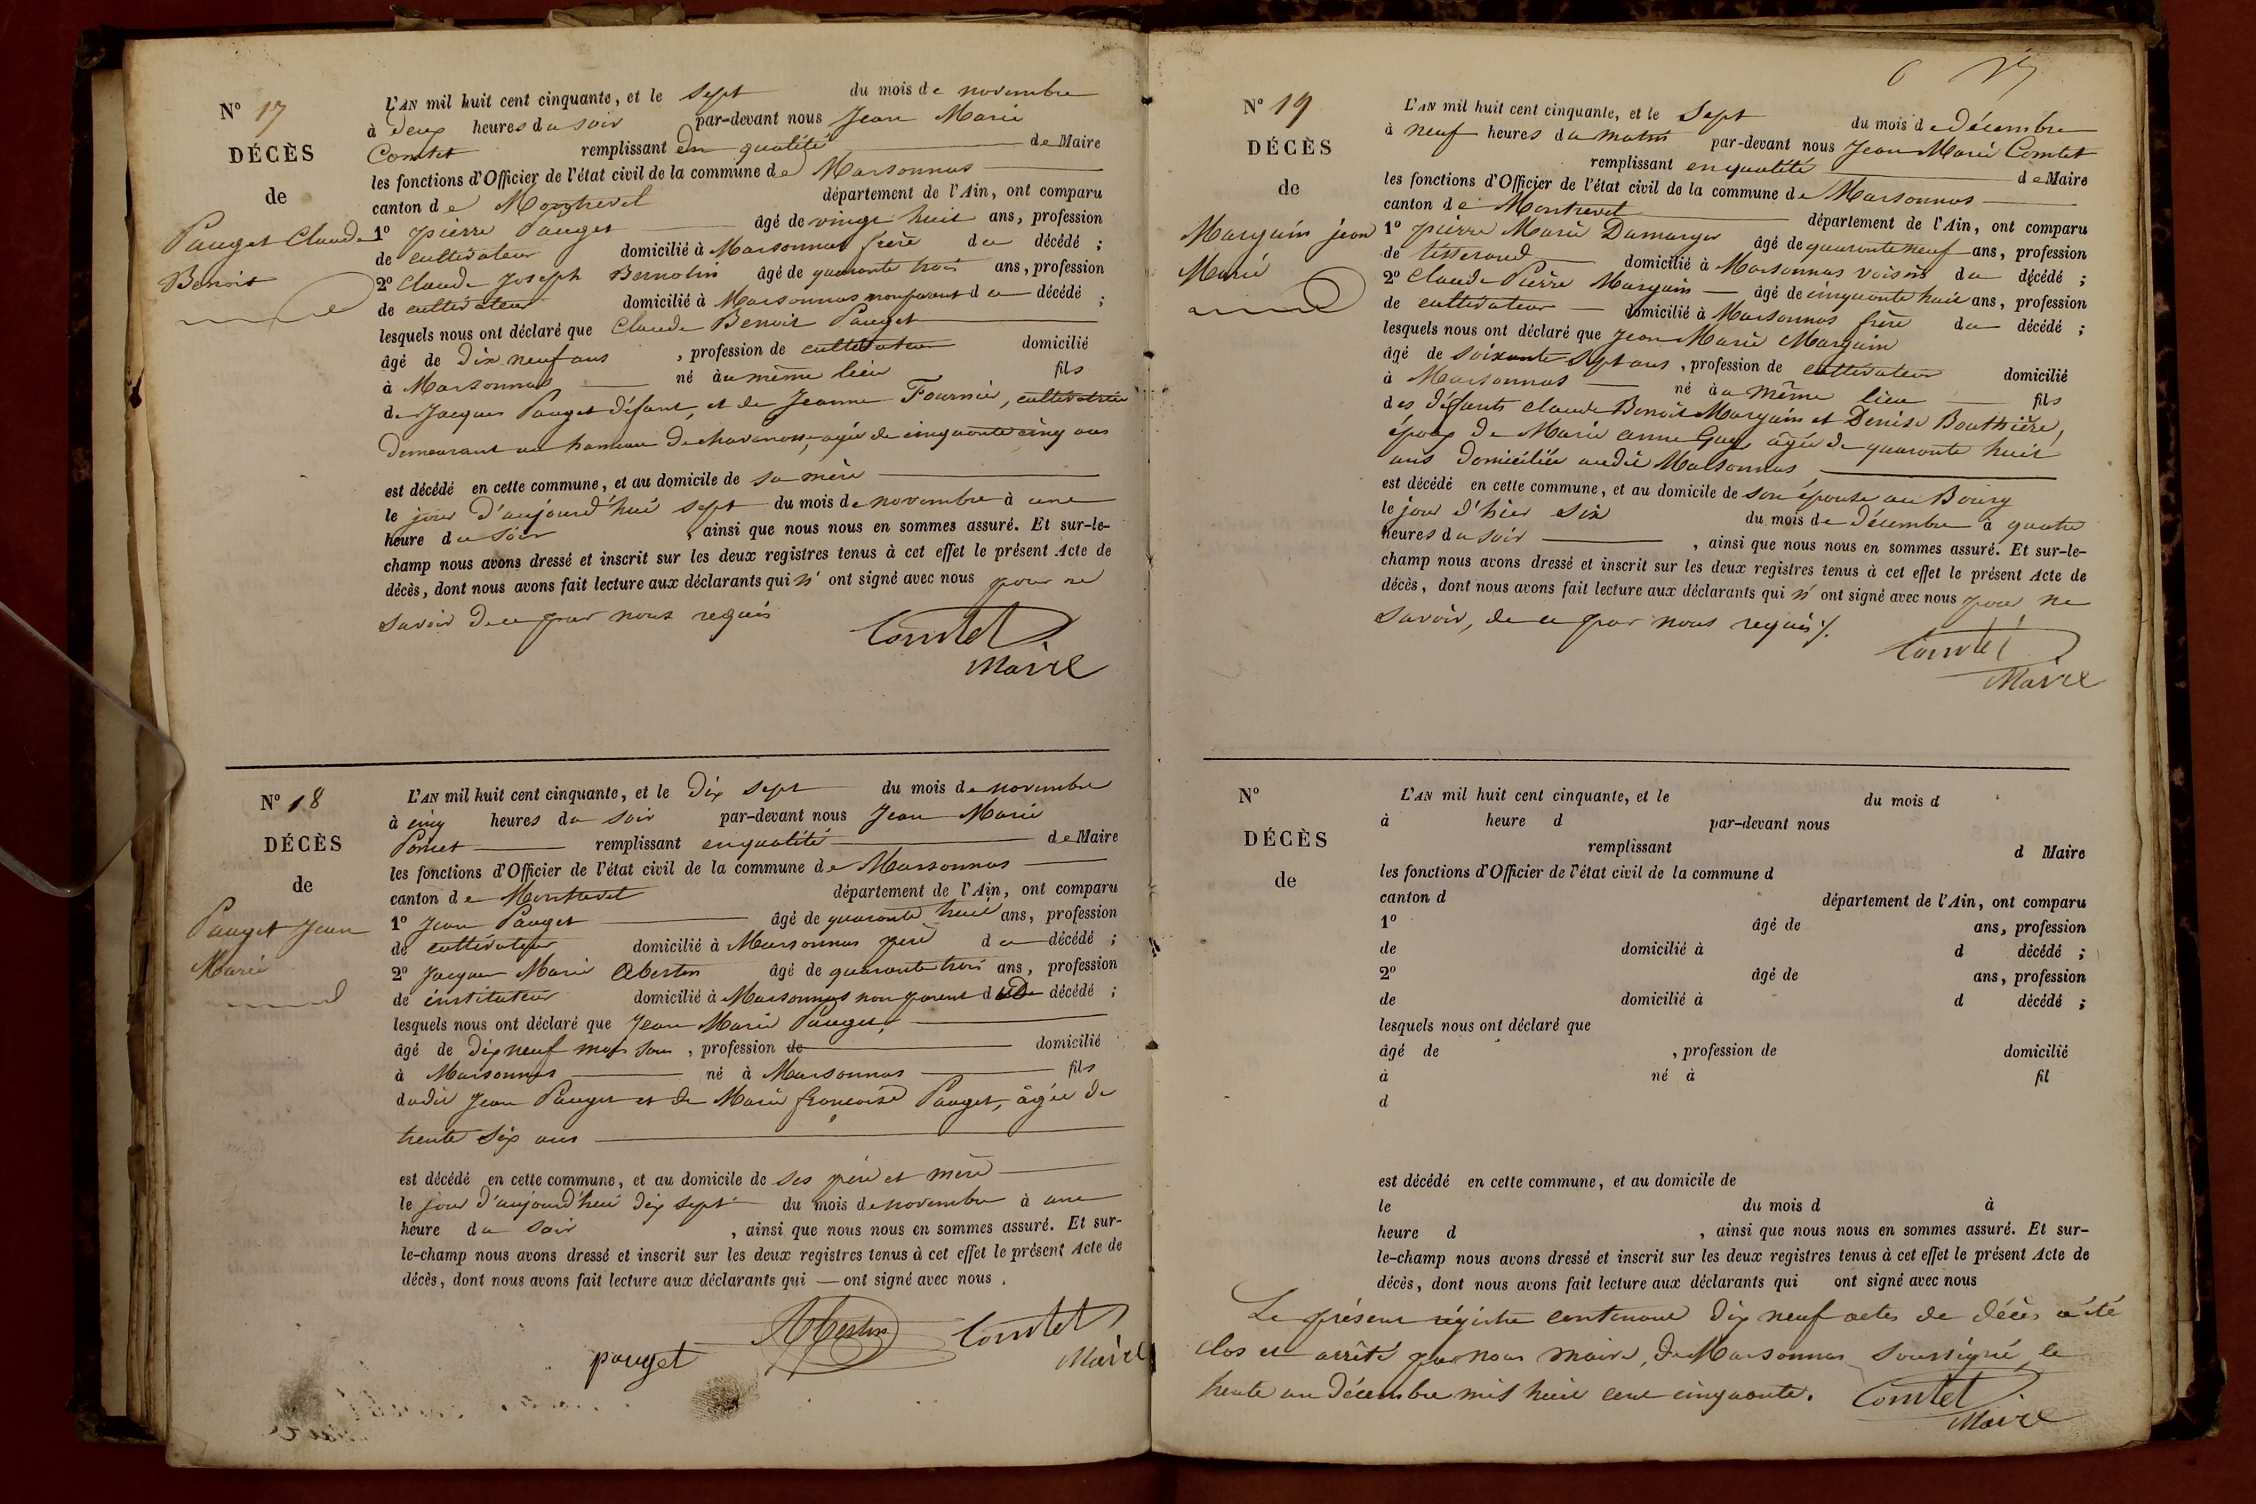 N° 17
DÉCÈS
de
Pauget Claude
Benoit
L'AN mil huit cent cinquante, et le sept du mois de novembre
à deux heures du soir par-devant nous Jean Marie
Comtet remplissant en qualité de Maire
les fonctions d'Officier de l'état civil de la commune de Marsonnas
canton de Montrevel département de l'Ain, ont comparu
1° pierre Pauget âgé de vingt huit ans, profession
de cultivateur domicilié à Marsonnas frère du décédé ;
2° Claude Joseph Bernolin âgé de quarante trois ans, profession
de cultivateur domicilié à Marsonnas non parent du décédé ;
lesquels nous ont déclaré que Claude Benoit Pauget
âgé de dix neuf ans , profession de cultivateur domicilié
à Marsonnas né au même lieu fils
de Jacques Pauget défunt, et de Jeanne Fournier, cultivatrice
demeurant au hameau de agée de cinquante cinq ans
est décédé en cette commune, et au domicile de sa mère
le jour d'aujourd'hui sept du mois de novembre à une
heure du soir , ainsi que nous nous en sommes assuré. Et sur-le-
champ nous avons dressé et inscrit sur les deux registres tenus à cet effet le présent Acte de
décès, dont nous avons fait lecture aux déclarants qui n' ont signé avec nous pour ne
savoir de ce par nous requis
Comtet
Maire
N° 18
DÉCÈS
de
Pauget Jean
Marie
L'AN mil huit cent cinquante, et le dix sept du mois de novembre
à cinq heures du soir par-devant nous Jean Marie
remplissant en qualité de Maire
les fonctions d'Officier de l'état civil de la commune de Marsonnas
canton de Montrevel département de l'Ain, ont comparu
1° Jean Pauget âgé de quarante huit ans, profession
de cultivateur domicilié à Marsonnas père du décédé ;
2° Jacques Marie Abertin âgé de quarante trois ans, profession
de instituteur domicilié à Marsonnas non parent du décédé ;
lesquels nous ont déclaré que Jean Marie Pauget,
âgé de dix neuf mois sans , profession de domicilié
à Marsonnas né à Marsonnas fils
dudit Jean Pauget et de Marie françoise Pauget, âgée de
trente six ans
est décédé en cette commune, et au domicile de ses père et mère
le jour d'aujourd'hui dix sept du mois de novembre à une
heure du soir , ainsi que nous nous en sommes assuré. Et sur-
le-champ nous avons dressé et inscrit sur les deux registres tenus à cet effet le présent Acte de
décès, dont nous avons fait lecture aux déclarants qui — ont signé avec nous .
pauget Abertin Comtet
Maire
6
N° 19
DÉCÈS
de
Marguin jean
Marie
L'AN mil huit cent cinquante, et le sept du mois de décembre
à neuf heures du matin par-devant nous Jean Marie Comtet
remplissant en qualité de Maire
les fonctions d'Officier de l'état civil de la commune de Marsonnas
canton de Montrevel département de l'Ain, ont comparu
1° pierre Marie Damanger âgé de quarante neuf ans, profession
de tisserand domicilié à Marsonnas voisin du décédé ;
2° Claude Pierre Marguin âgé de cinquante huit ans, profession
de cultivateur domicilié à Marsonnas frère du décédé ;
lesquels nous ont déclaré que Jean Marie Marguin
âgé de soixante sept ans , profession de cultivateur domicilié
à Marsonnas né au même lieu fils
des défunts claude Benoit Marguin et Denise Bouthière,
époux de Marie anne Guy, âgée de quarante huit
ans domiciliée audit Marsonnas
est décédé en cette commune, et au domicile de son épouse au Bourg
le jour d'hier six du mois de décembre à quatre
heures du soir , ainsi que nous nous en sommes assuré. Et sur-le-
champ nous avons dressé et inscrit sur les deux registres tenus à cet effet le présent Acte de
décès, dont nous avons fait lecture aux déclarants qui n' ont signé avec nous pour ne
savoir, de ce par nous requis /.
Comtet
Maire
N°
DÉCÈS
de
L'AN mil huit cent cinquante, et le du mois d
à heure d par-devant nous
remplissant d Maire
les fonctions d'Officier de l'état civil de la commune d
canton d département de l'Ain, ont comparu
1° âgé de ans, profession
de domicilié à d décédé ;
2° âgé de ans, profession
de domicilié à d décédé ;
lesquels nous ont déclaré que
âgé de , profession de domicilié
à né à fil
d
est décédé en cette commune, et au domicile de
le du mois d à
heure d , ainsi que nous nous en sommes assuré. Et sur-
le-champ nous avons dressé et inscrit sur les deux registres tenus à cet effet le présent Acte de
décès, dont nous avons fait lecture aux déclarants qui ont signé avec nous
Le présent régistre contenant dix neuf actes de décès a été
clos et arrêté par nous maire, de Marsonnas soussigné, le
trente un décembre mil huit cent cinquante. Comtet
Maire